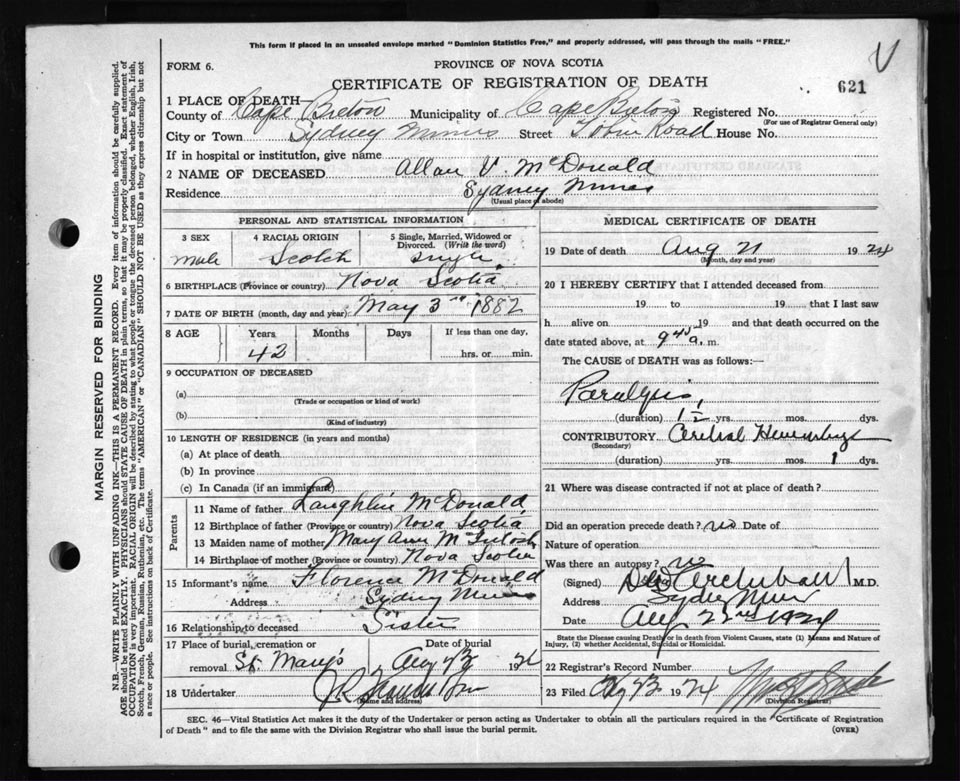 This form if placed in an unsealed envelope marked "Dominion Statistics Free," and properly addressed, will pass through the mails "FREE."
V
FORM 6.
PROVINCE OF NOVA SCOTIA
CERTIFICATE OF REGISTRATION OF DEATH
621
1 PLACE OF DEATH—
County of Cape Breton Municipality of Cape Breton Registered No.
(For use of Registrar General only)
City or Town Sydney Mines Street Road House No.
If in hospital or institution, give name
2 NAME OF DECEASED Allan V. McDonald
Residence Sydney Mines
(Usual place of abode)
PERSONAL AND STATISTICAL INFORMATION
3 SEX
Male
4 RACIAL ORIGIN
Scotch
5 Single, Married, Widowed or
Divorced. (Write the word)
Single
6 BIRTHPLACE (Province or country) Nova Scotia
7 DATE OF BIRTH (month, day and year) May 3rd 1882
8 AGE
Years
42
Months
Days
If less than one day,
hrs. or min.
9 OCCUPATION OF DECEASED
(a)
(Trade or occupation or kind of work)
(b)
(Kind of industry)
10 LENGTH OF RESIDENCE (in years and months)
(a) At place of death
(b) In province
(c) In Canada (if an immigrant)
Parents
11 Name of father Laughlin McDonald
12 Birthplace of father (Province or country) Nova Scotia
13 Maiden name of mother Mary Ann McIntosh
14 Birthplace of mother (Province or country) Nova Scotia
15 Informant's name Florence McDonald
Address Sydney Mines
16 Relationship to deceased Sister
17 Place of burial, cremation or
removal St. Mary's
Date of burial
Aug 23 1924
18 Undertaker J.R.
(Name and address)
MEDICAL CERTIFICATE OF DEATH
19 Date of death Aug 21 1924
(Month, day and year)
20 I HEREBY CERTIFY that I attended deceased from
19 to 19 that I last saw
h alive on 19 and that death occurred on the
date stated above, at 9 45 a. m.
The CAUSE of DEATH was as follows:
Paralysis
(duration) 1½ yrs. mos. dys.
CONTRIBUTORY Cerebral Hemorrhage
(Secondary)
(duration) yrs. mos. 1 dys.
21 Where was disease contracted if not at place of death?
Did an operation precede death? no Date of
Nature of operation
Was there an autopsy? no
(Signed) Archibald M.D.
Address Sydney Mines
Date Aug 22nd 1924
State the Disease causing Death or in death from Violent Causes, state (1) Means and Nature of
Injury, (2) whether Accidental, Suicidal or Homicidal.
22 Registrar's Record Number
23 Filed Aug 23 1924
(Division Registrar)
SEC. 46—Vital Statistics Act makes it the duty of the Undertaker or person acting as Undertaker to obtain all the particulars required in the "Certificate of Registration
of Death" and to file the same with the Division Registrar who shall issue the burial permit.
(OVER)
MARGIN RESERVED FOR BINDING
N.B.—WRITE PLAINLY WITH UNFADING INK—THIS IS A PERMANENT RECORD. Every item of information should be carefully supplied.
AGE should be stated EXACTLY. PHYSICIANS should STATE CAUSE OF DEATH in plain terms, so that it may be properly classified. Exact statement of
OCCUPATION is very important. RACIAL ORIGIN will be described by stating to what people or tongue the deceased person belonged, whether English, Irish,
Scotch, French, German, Russian, Ruthenian, etc. The terms "AMERICAN" or "CANADIAN" SHOULD NOT BE USED as they express citizenship but not
a race or people. See instructions on back of Certificate.